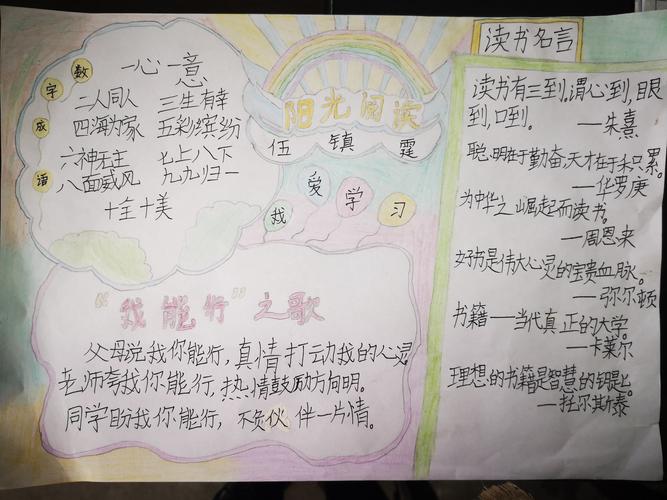 数字成语
一心一意
二人同人 三生有幸
四海为家 五彩缤纷
六神无主 七上八下
八面威风 九九归一
十全十美
阳光阅读
伍镇霆
我爱学习
“我能行”之歌
父母说我你能行,真情打动我的心灵
老师夸我你能行,热情鼓励方向明。
同学盼我你能行,不负伙伴一片情。
读书名言
读书有三到,谓心到,眼
到,口到。
—朱熹
聪明在于勤奋,天才在于积累。
—华罗庚
为中华之崛起而读书。
—周恩来
好书是伟大心灵的宝贵血脉。
—弥尔顿
书籍——当代真正的大学。
—卡莱尔
理想的书籍是智慧的钥匙。
—托尔斯泰